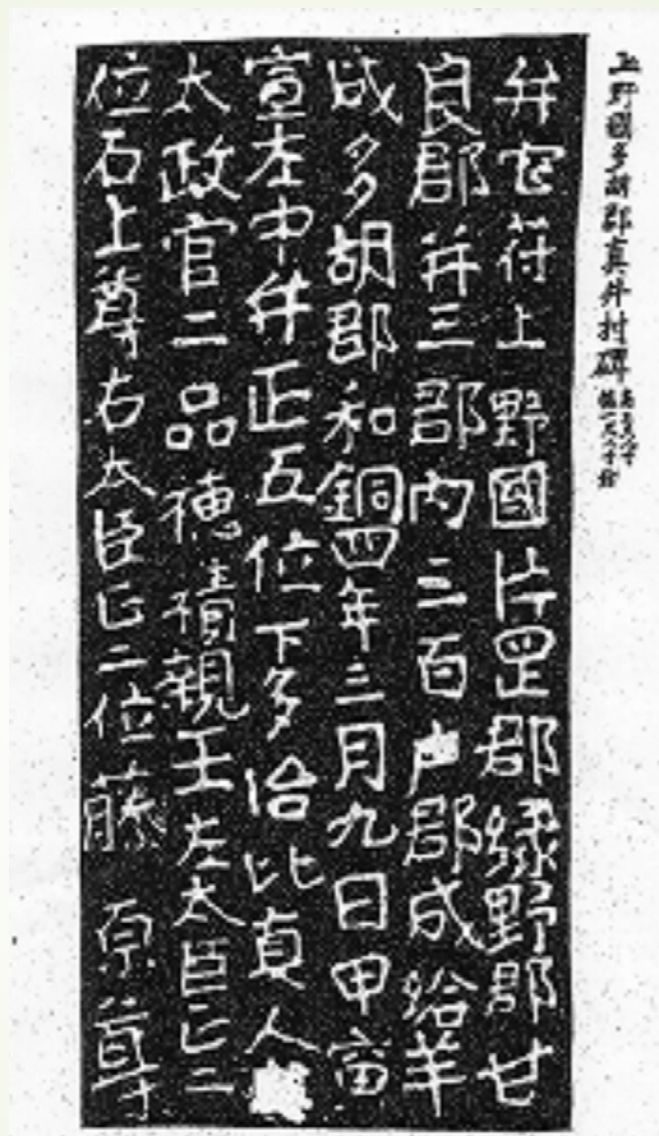 上野國多胡郡真井村碑
弁官符上野國片罡郡緑野郡甘
良郡并三郡内三百戸郡成給羊
成多胡郡和銅四年三月九日甲寅
宣左中弁正五位下多治比真人
太政官二品穂積親王左太臣正二
位石上尊右太臣正二位藤原尊